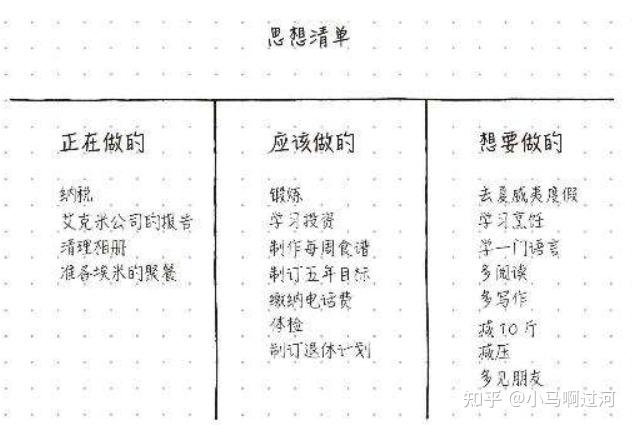 思想清单
正在做的
纳税
艾克米公司的报告
清理相册
准备埃米的聚餐
应该做的
锻炼
学习投资
制作每周食谱
制订五年目标
缴纳电话费
体检
制订退休计划
想要做的
去夏威夷度假
学习烹饪
学一门语言
多阅读
多写作
减10斤
减压
多见朋友
知乎 @小马啊过河